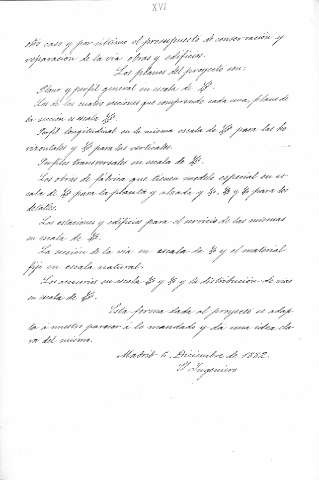 XVI
otro caso y por ultimo el presupuesto de conservación y
reparacion de la via obras y edificios.
Los planos del proyecto son:
Plano y perfil general en escala de
Los de las cuatro secciones que comprende cada una, plano de
la sección a escala
Perfil longitudinal en la misma escala de para las ho
rizontales y para las verticales.
Perfiles transversales en escala de
Los obras de fabrica que tienen modelo especial en es
cala de para la planta y alzado y y para los
detalles.
Las estaciones y edificios para el servicio de las mismas
en escala de
La sección de la via en escala de y el material
fijo en escala natural.
Los accesorios en escala y y de distribución de vias
en escala de
Esta forma dada al proyecto se adap-
ta a nuestro parecer a lo mandado y da una idea cla
ra del mismo.
Madrid 6 Diciembre de 1882
El Ingeniero